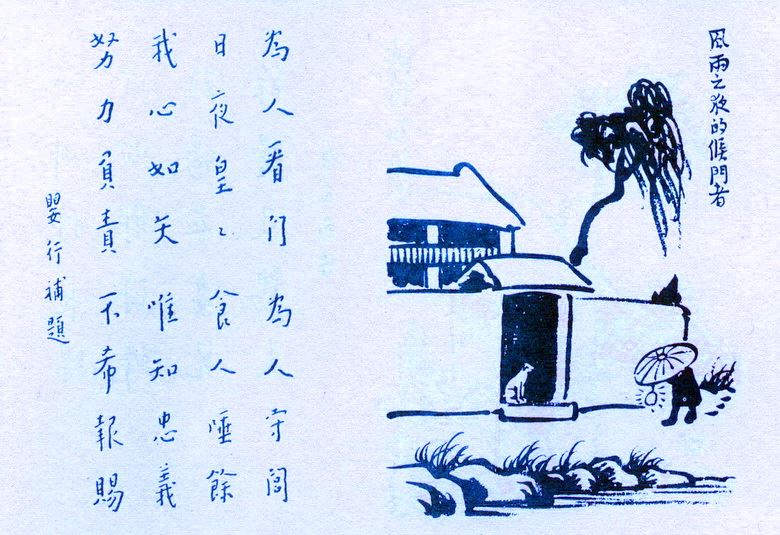 風雨之夜的候門者
為人看门 為人守閭
日夜皇〻 食人唾餘
我心如矢 唯知忠義
努力負責 不希報賜
嬰行補題